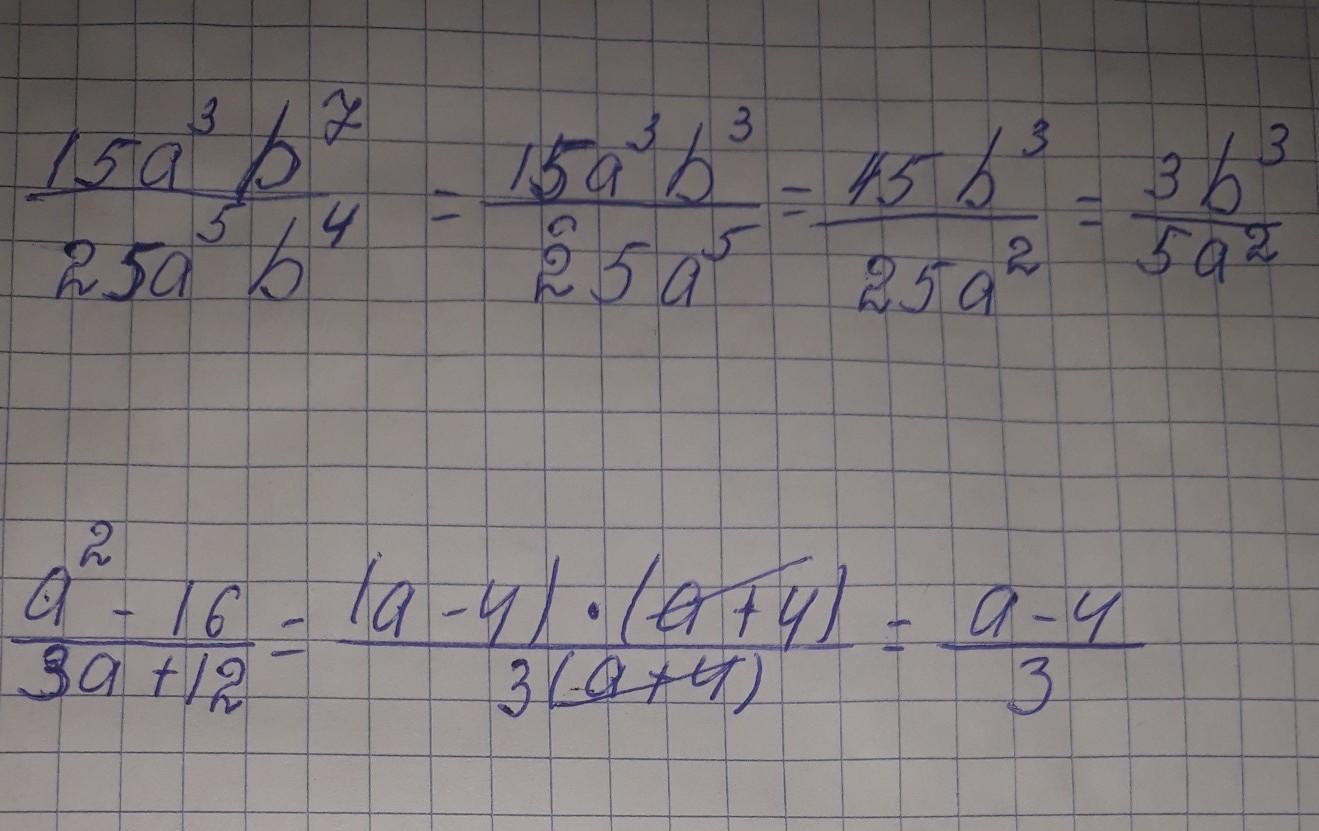 15a³b⁷/25a⁵b⁴ = 15a³b³/25a⁵ = 15b³/25a² = 3b³/5a²
a² - 16/3a + 12 = (a - 4) · (a + 4)/3(a + 4) = a - 4/3